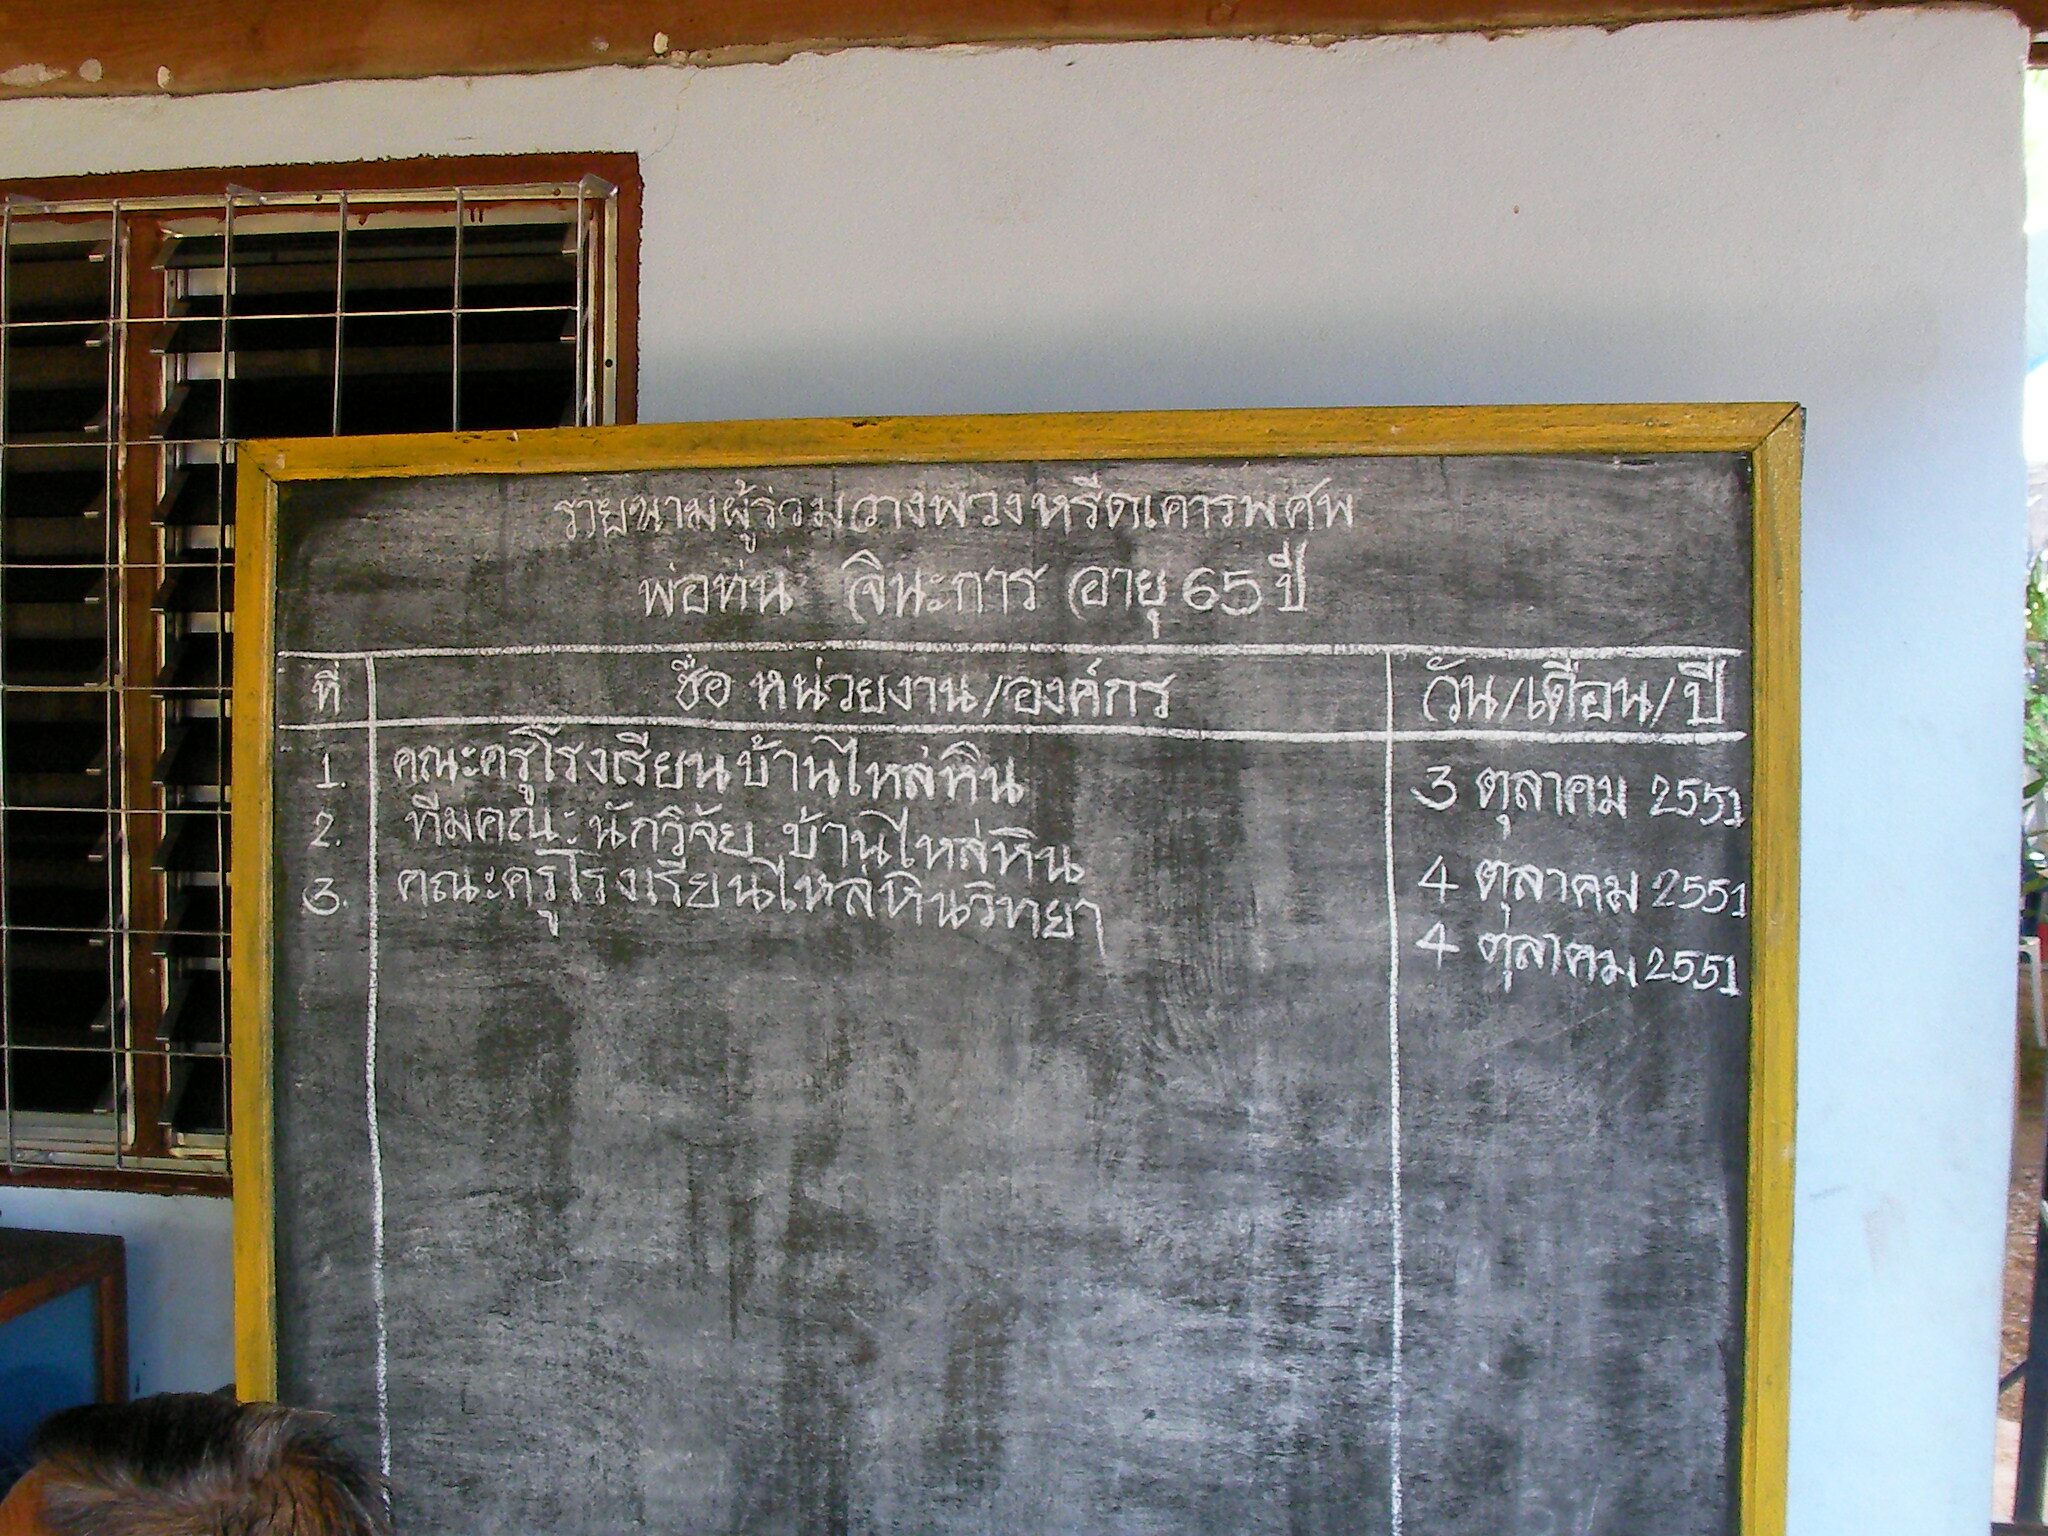 รายนามผู้ร่วมวางพวงหรีดเคารพศพ
พ่อท่น จินะการ อายุ 65 ปี
ที่ ชื่อ หน่วยงาน/องค์กร วัน/เดือน/ปี
1. คณะครูโรงเรียนบ้านไหล่หิน 3 ตุลาคม 2551
2. ทีมคณะนักวิจัย บ้านไหล่หิน 4 ตุลาคม 2551
3. คณะครูโรงเรียนไหล่หินวิทยา 4 ตุลาคม 2551